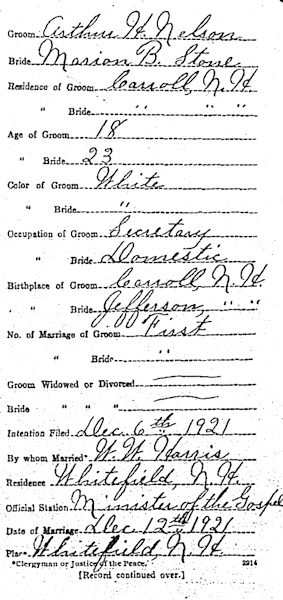 Groom Arthur H. Nelson
Bride Marion B. Stone
Residence of Groom Carroll, N. H.
" Bride " " "
Age of Groom 18
" Bride 23
Color of Groom White
" Bride "
Occupation of Groom Secretary
" Bride Domestic
Birthplace of Groom Carroll, N. H.
" Bride Jefferson, " "
No. of Marriage of Groom First
" Bride "
Groom Widowed or Divorced
Bride " " "
Intention Filed Dec. 6th 1921
By whom Married* W. W. Harris
Residence Whitefield, N. H.
Official Station Minister of the Gospel
Date of Marriage Dec. 12th 1921
Place Whitefield, N. H.
*Clergyman or Justice of the Peace. 2914
[Record continued over.]